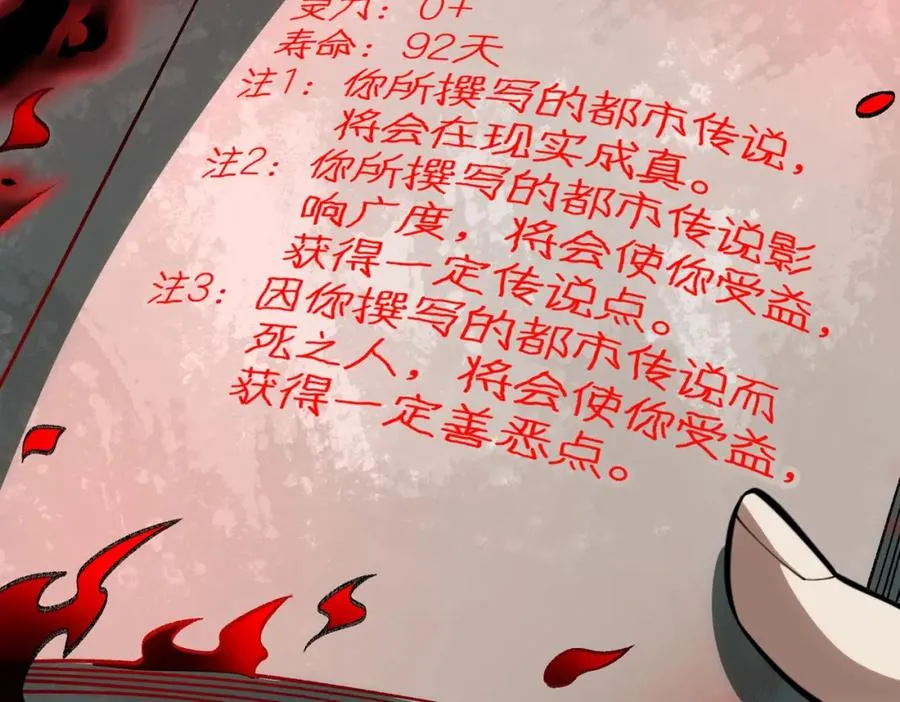 灵力：0+
寿命：92天
注1：你所撰写的都市传说，
将会在现实成真。
注2：你所撰写的都市传说影
响广度，将会使你受益，
获得一定传说点。
注3：因你撰写的都市传说而
死之人，将会使你受益，
获得一定善恶点。